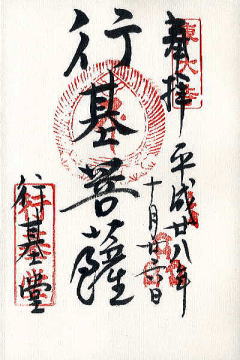 奉拝
平成廿八年
十月廿三日
行基菩薩
行基堂